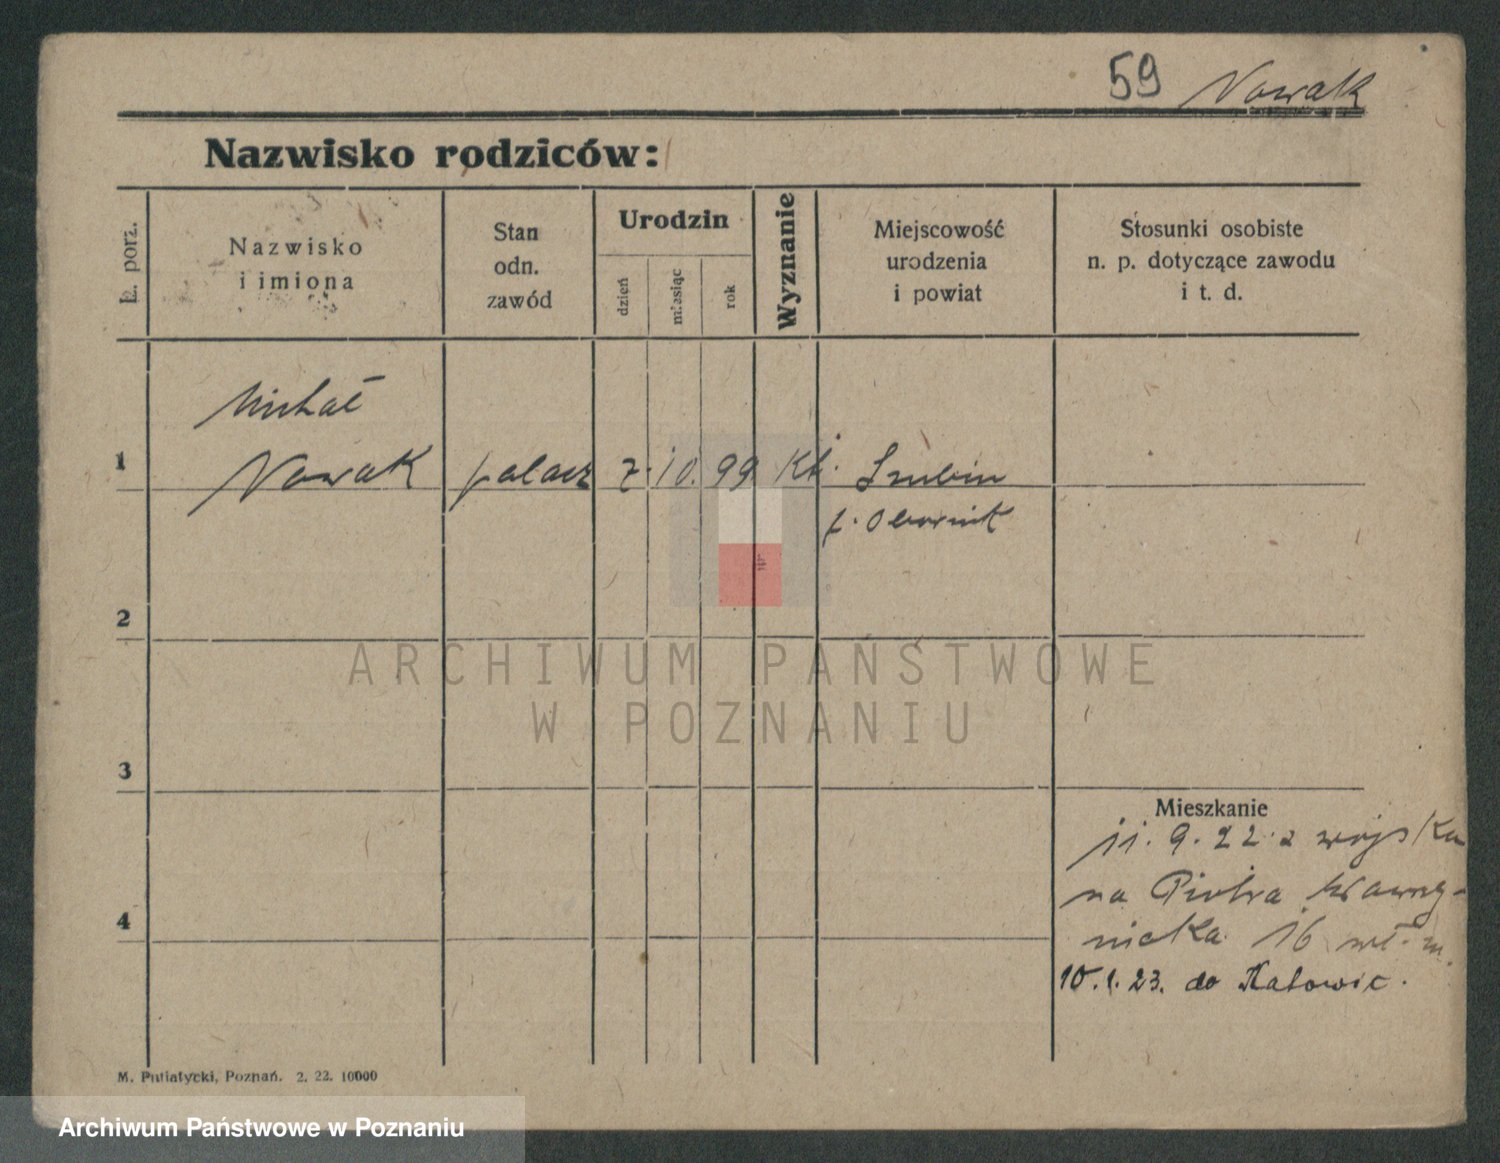 59 Nowak
Nazwisko rodziców:
L. porz.
Nazwisko
i imiona
Stan
odn.
zawód
Urodzin
dzień
miesiąc
rok
Wyznanie
Miejscowość
urodzenia
i powiat
Stosunki osobiste
n. p. dotyczące zawodu
i t. d.
Michał
1 Nowak palacz 7. 10. 99 Kt. Szubin
p. Obornik
2
3
4
Mieszkanie
11. 9. 22 z wojska
na Piotra Wawrzy-
niaka 16
10. 1. 23. do Katowic.
M. Putiatycki, Poznań. 2. 22. 10000
ARCHIWUM PAŃSTWOWE
W POZNANIU
Archiwum Państwowe w Poznaniu